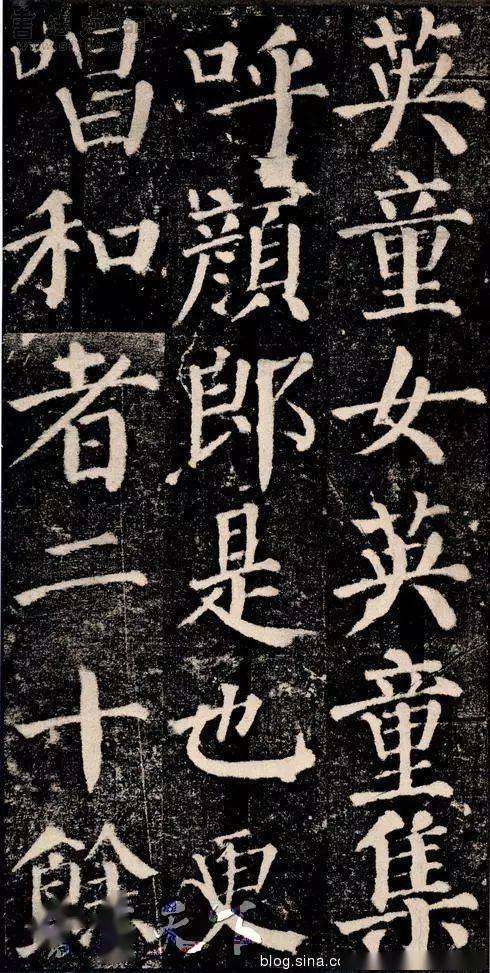 英童女英童集
呼顏郎是也更
唱和者二十餘
blog.sina.co